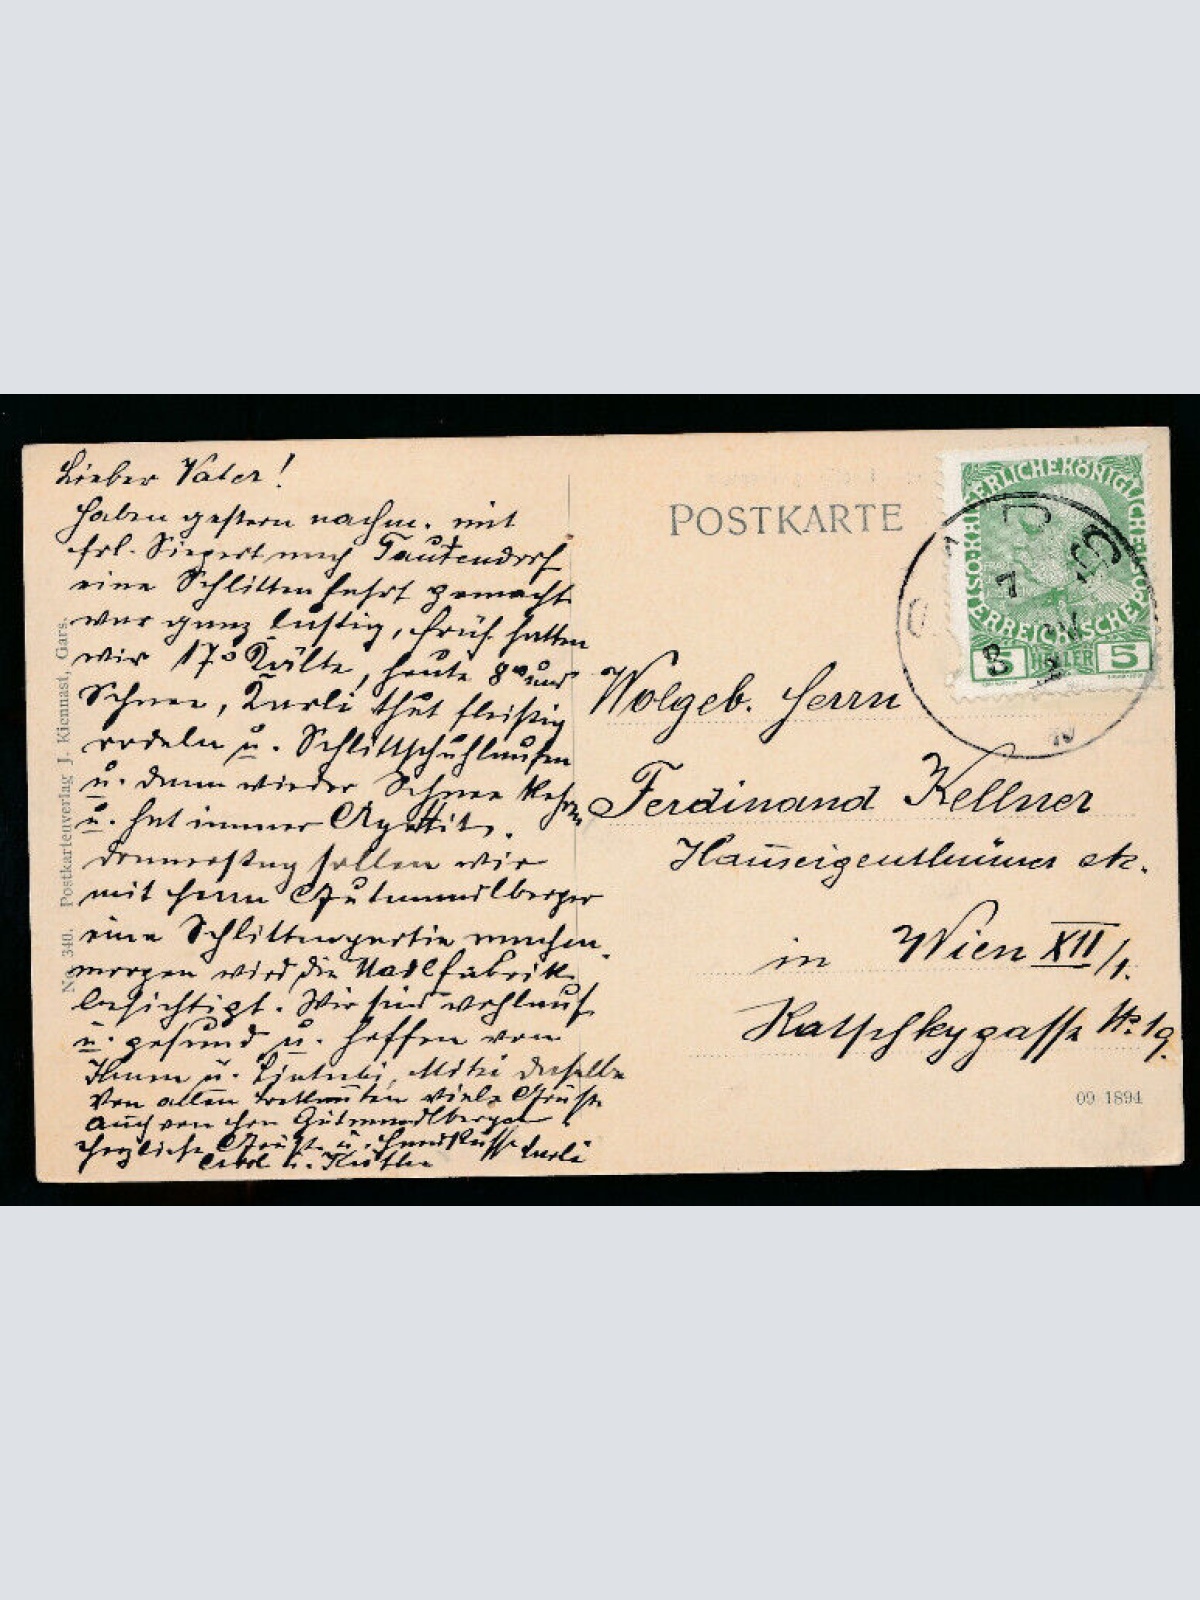 Lieber Vater!
Haben gestern nachm. mit
Frl. Siegert nach Tautendorf
eine Schlittenfahrt gemacht
war ganz lustig, früh hatten
wir 17° Kälte, heute 8° und
Schnee, Karli thut fleißig
rodeln u. Schlittschuhlaufen
u. dann wieder Schnee kehren
u. hat immer Appetit.
Donnerstag sollen wir
mit Herrn Gutmandlberger
eine Schlittenpartie machen,
morgen wird die Nadlfabrik
besichtigt. Wir sind wohlauf
u. gesund u. hoffen von
Ihnen u. Mitzi dasselbe
Von allen Bekannten viele Grüße
auch von Hrn Gutmandlberger
herzliche Grüße u. Handküsse Karli
POSTKARTE
KAISERLICHE KÖNIGLICHE
ÖSTERREICHISCHE
5 HELLER 5
Wolgeb. Herrn
Ferdinand Kellner
Hauseigenthümer etc.
in Wien XII/1.
Ratschkygasse No. 19.
09 1894
No. 340. Postkartenverlag J. Kiennast, Gars.